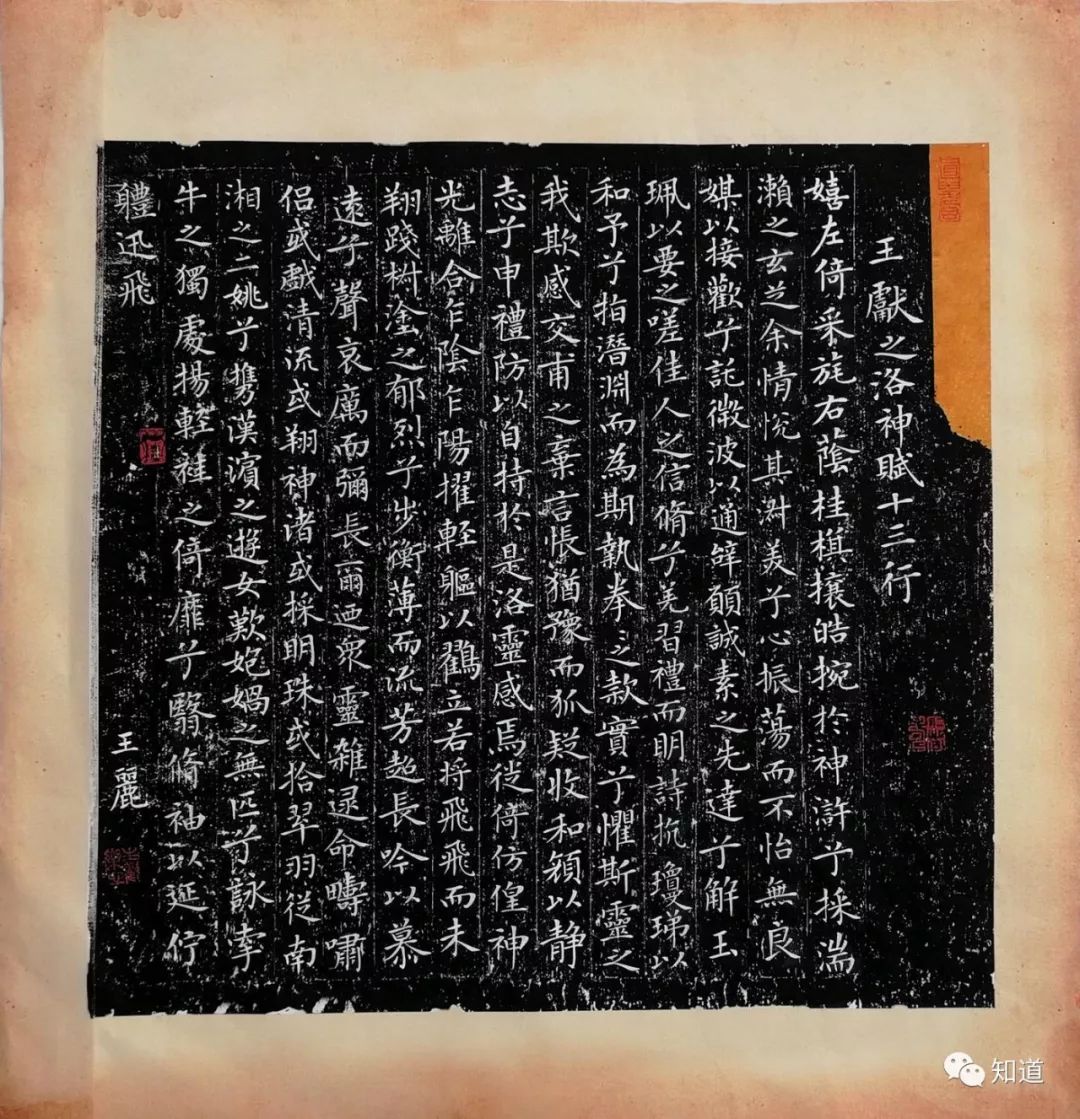 王獻之洛神賦十三行
嬉左倚采旄右蔭桂旗攘皓捥於神滸兮採湍
瀨之玄芝余情悅其淑美兮心振蕩而不怡無良
媒以接歡兮託微波以通辭願誠素之先達兮解玉
珮以要之嗟佳人之信脩兮羌習禮而明詩抗瓊珶以
和予兮指潛淵而為期執拳之款實兮懼斯靈之
我欺感交甫之棄言悵猶豫而狐疑收和顏以静
志兮申禮防以自持於是洛靈感焉徙倚仿偟神
光離合乍陰乍陽擢輕軀以鶴立若将飛飛而未
翔踐椒塗之郁烈兮步衡薄而流芳超長吟以慕
遠兮聲哀厲而彌長爾迺眾靈雜遝命疇嘯
侣或戲清流或翔神渚或採明珠或拾翠羽從南
湘之二姚兮攜漢濱之遊女歎媽之無匹兮詠牽
牛之獨處揚輕袿之倚靡兮翳脩袖以延佇
軆迅飛
王麗
知道